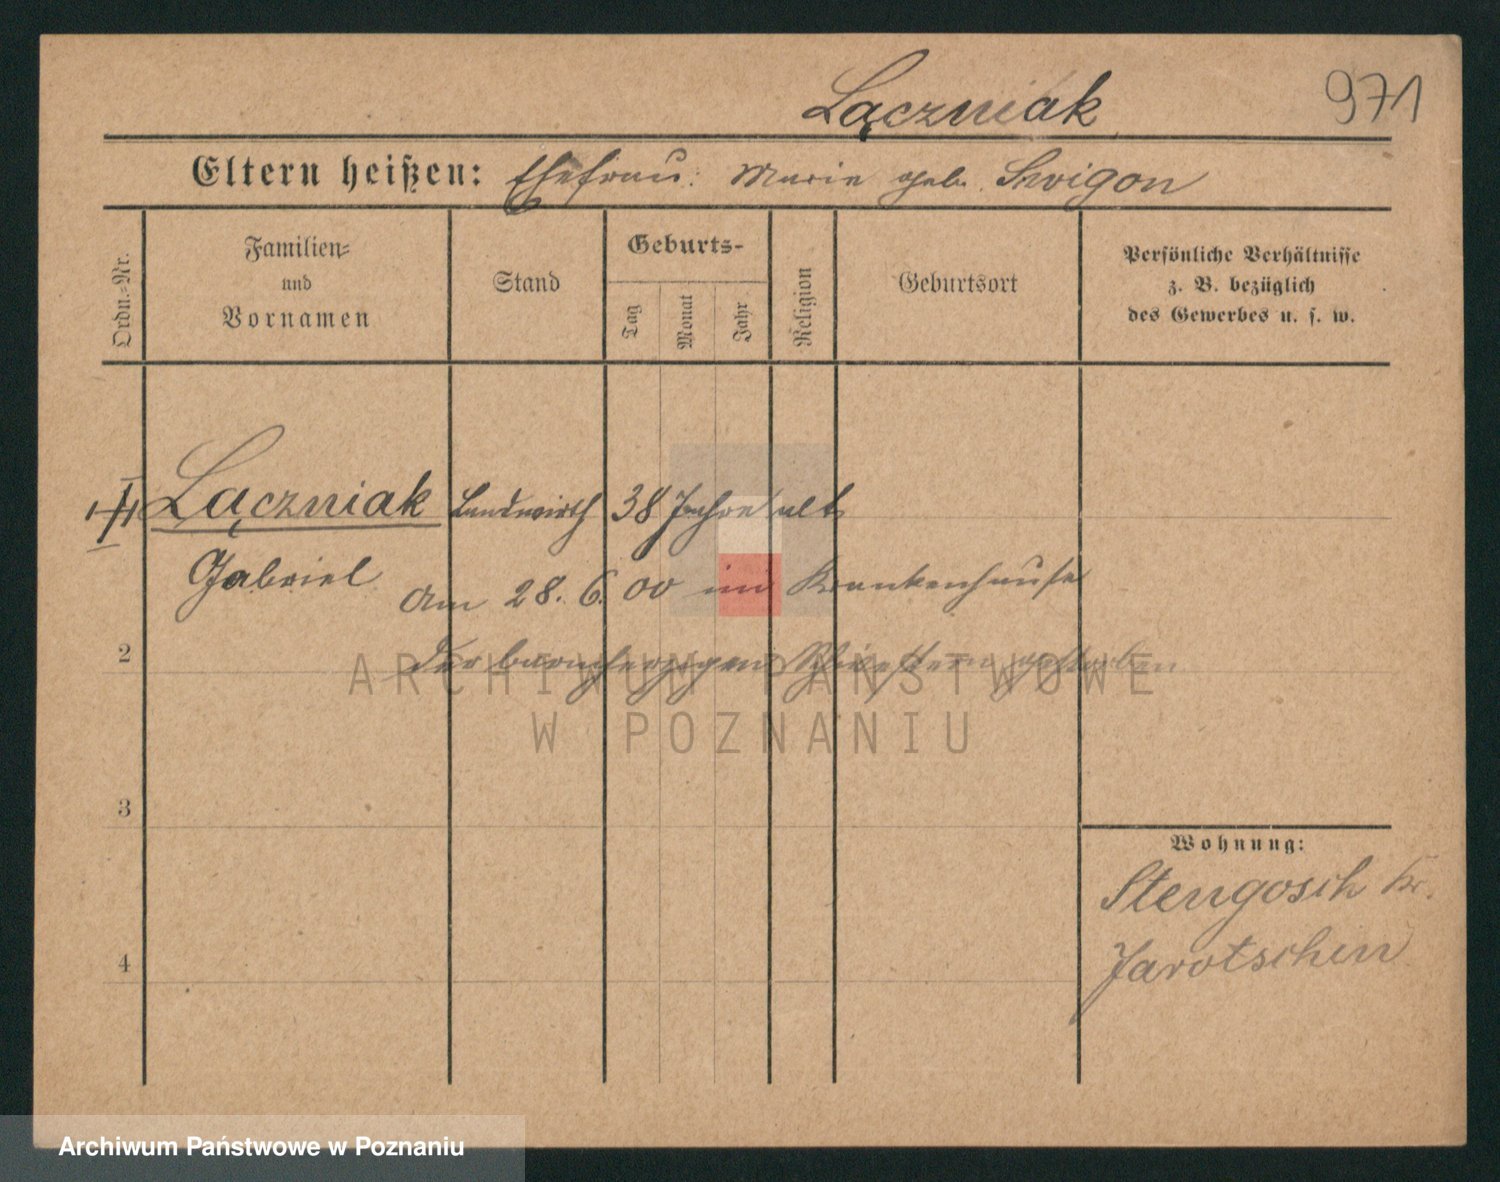 Łączniak 971
Eltern heißen: Ehefrau: Marie geb. Swigon
Ordn.-Nr.
Familien-
und
Vornamen
Stand
Geburts-
Tag
Monat
Jahr
Religion
Geburtsort
Persönliche Verhältnisse
z. B. bezüglich
des Gewerbes u. s. w.
Łączniak Landwirth 38 Jahre alt
Gabriel
Am 28. 6. 00 im Krankenhause
der barmherzigen Schwestern gestorben
2
3
4
Wohnung:
Stengosch Kr.
Jarotschin
ARCHIWUM PAŃSTWOWE
W POZNANIU
Archiwum Państwowe w Poznaniu